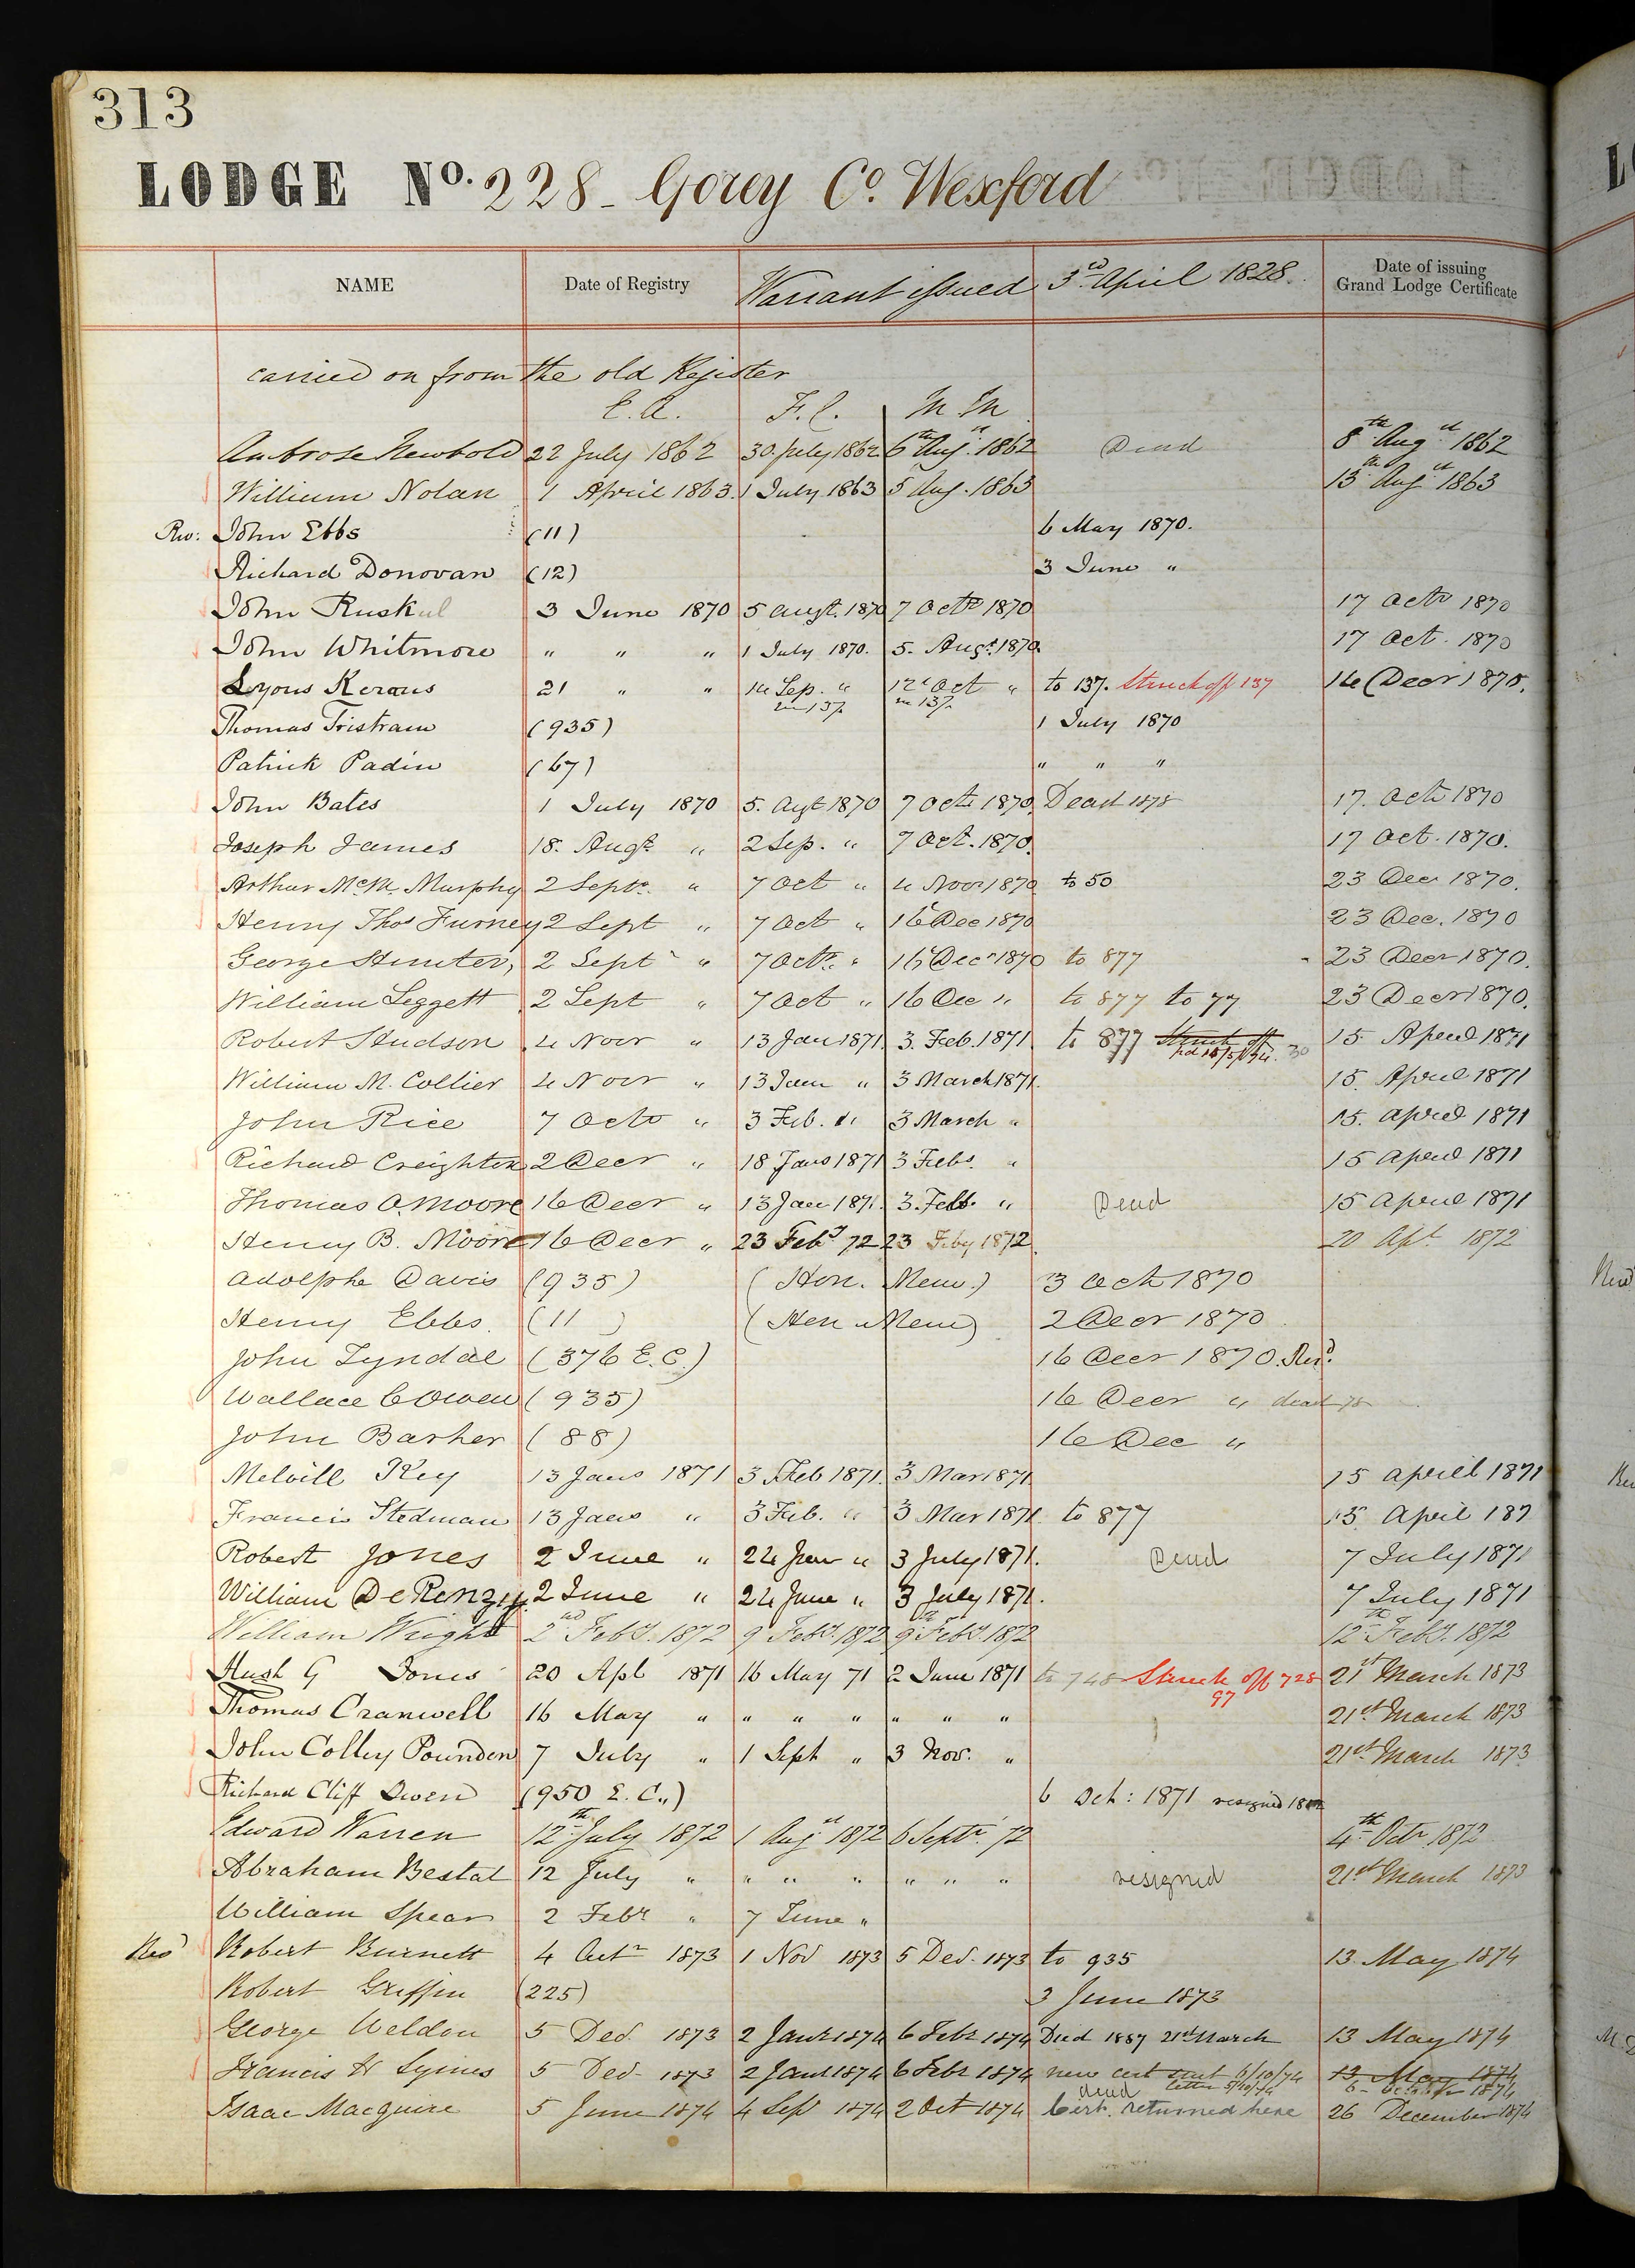 313
LODGE No. 228 - Gorey Co. Wexford
NAME Date of Registry Warrant issued 3rd April 1828. Date of issuing Grand Lodge Certificate
carried on from the old Register
E.A. F.C. M M
Ambrose Newbold 22 July 1862 30 July 1862 6th Augst. 1862 Dead 8th Augst 1862
William Nolan 1 April 1863 1 July 1863 5 Aug. 1863 13th Augst 1863
Rev: John Ebbs (11) 6 May 1870.
Richard Donovan (12) 3 June "
John Ruskul 3 June 1870 5 augt. 1870 7 Octr 1870 17 Octr 1870
John Whitmore " " " 1 July 1870. 5. Augt. 1870 17 Oct. 1870
Lyons Kerans 21 " " 14 Sep. " in 137 12 Oct " in 137 to 137. Struck off 137 14 Decr 1870.
Thomas Tristram (935) 1 July 1870
Patrick Padin (67) " " "
John Bates 1 July 1870 5. Augt 1870 7 Octr 1870. Dead 1878 17. Octr 1870
Joseph James 18. Augt. " 2 Sep. " 7 Oct. 1870. 17 Oct. 1870.
Arthur McM. Murphy 2 Septr. " 7 Oct " 4 Novr 1870 to 50 23 Decr 1870.
Henry Thos Furney 2 Sept " 7 Oct " 16 Dec 1870 23 Dec. 1870
George Hunter, 2 Sept " 7 Octr. " 16 Decr 1870 to 877 23 Decr 1870.
William Leggett 2 Sept " 7 Oct " 16 Dec " to 877 to 77 23 Decr 1870.
Robert Hudson 4 Novr " 13 Jan 1871. 3. Feb. 1871 to 877 Struck off 30 15 April 1871
William M. Collier 4 Novr " 13 Jan " 3 March 1871. 15. April 1871
John Rice 7 Octr " 3 Feb. " 3 March " 15. April 1871
Richard Creighton 2 Decr " 18 Jany 1871 3 Feby. " 15 April 1871
Thomas O. Moore 16 Decr " 13 Jan 1871. 3. Feb. " Dead 15 April 1871
Henry B. Moore 16 Decr " 23 Feby 72 23 Feby 1872. 20 Apl. 1872
Adolphe Davis (935) (Hon. Mem.) 3 Oct 1870
Henry Ebbs. (11 ) (Hon Mem) 2 Decr 1870
John Tyndal (376 E.C.) 16 Decr 1870. Resd.
Wallace C Owen (935) 16 Decr " dead 78
John Barker (88) 16 Dec "
Melvill Key 13 Jany 1871 3 Feb 1871. 3 Mar 1871 15 April 1871
Francis Stedman 13 Jany " 3 Feb. " 3 Mar 1871. to 877 15. April 187
Robert Jones 2 June " 24 June " 3 July 1871. Dead 7 July 1871
William De Renzy 2 June " 24 June " 3 July 1871. 7 July 1871
William Wright 2nd Feby. 1872 9 Feby. 1872 9th Feby. 1872 12th Feby. 1872
Hugh G Jones 20 Apl 1871 16 May 71 2 June 1871 to 748 Struck off 728 97 21st March 1873
Thomas Cranwell 16 May " " " " " " " 21st March 1873
John Colley Pounden 7 July " 1 Sept " 3 Nov. " 21st March 1873
Richard Cliff Owen (950 E.C.,) 6 Oct: 1871 resigned
Edward Warren 12th July 1872 1 Augst 1872 6 Septr. 72 4th Octr. 1872
Abraham Bestal 12 July " " " " " " " resigned 21st March 1873
William Spear 2 Febr " 7 June "
Revd Robert Burnett 4 Octr 1873 1 Nov 1873 5 Dec. 1873 to 935 13. May 1874
Robert Griffin (225) 3 June 1873
George Weldon 5 Dec. 1873 2 Janr 1874 6 Febr 1874 Died 1887 21st March 13 May 1874
Francis H Symes 5 Dec. 1873 2 Janr 1874 6 Febr 1874 new cert sent 6/10/74 letter 5/10/74 13 May 1874 6 October 1874
Isaac Macguire 5 June 1874 4 Sep 1874 2 Oct 1874 dead Cert. returned here 26 December 1874